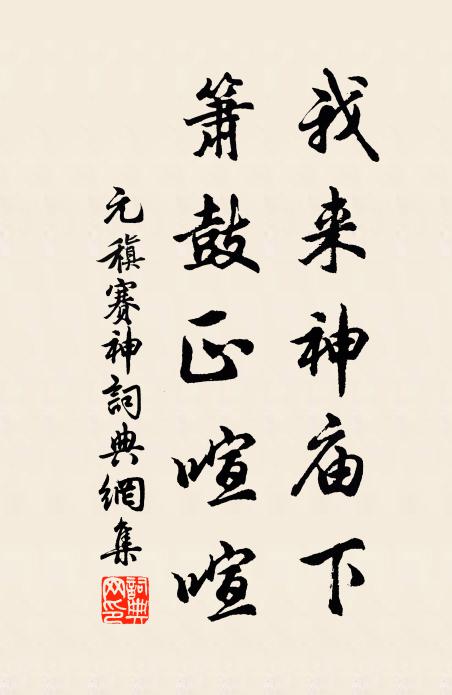 我来神庙下
箫鼓正喧喧
元稹赛神詞典網集
詞典网印